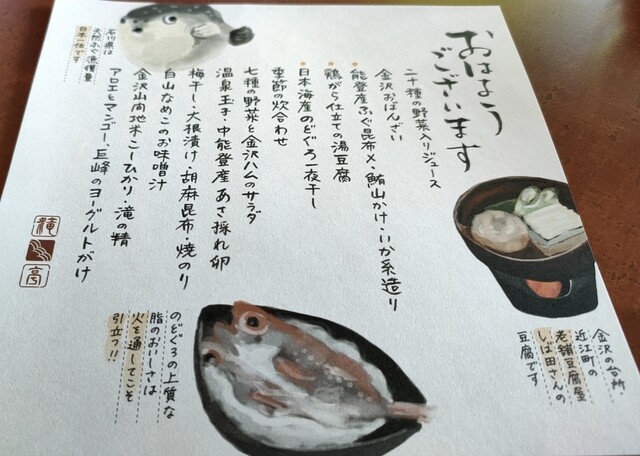 おはよう
ございます
二十種の野菜入りジュース
金沢おばんざい
能登産ふぐ昆布〆・鮪山かけ・いか糸造り
鶏がら仕立ての湯豆腐
日本海産のどぐろ一夜干し
季節の炊合わせ
七種の野菜と金沢ハムのサラダ
温泉玉子・中能登産あさ採れ卵
梅干し・大根漬け・胡麻昆布・焼のり
白山なめこのお味噌汁
金沢山間地米こしひかり・滝の精
アロエとマンゴー、巨峰のヨーグルトがけ
石川県は
天然ふぐ漁獲量
日本一位です
金沢の台所・
近江町の
老舗豆腐屋
しば田さんの
豆腐です
のどぐろの上質な
脂のおいしさは
火を通してこそ
引立つ!!
滝
亭